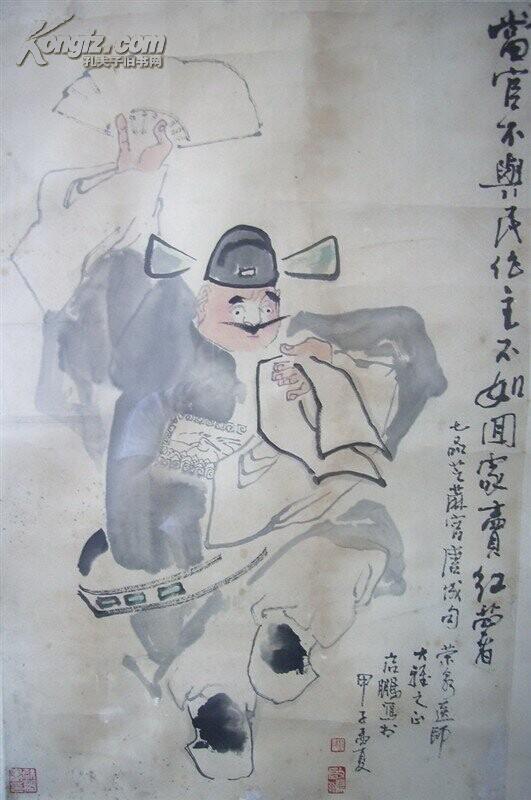 Kongfz.com
孔夫子旧书网
當官不與民作主不如回家賣红薯
七品芝蔴官唐成句
荣泉医師
大雅之正
启鵬写於
甲子孟夏